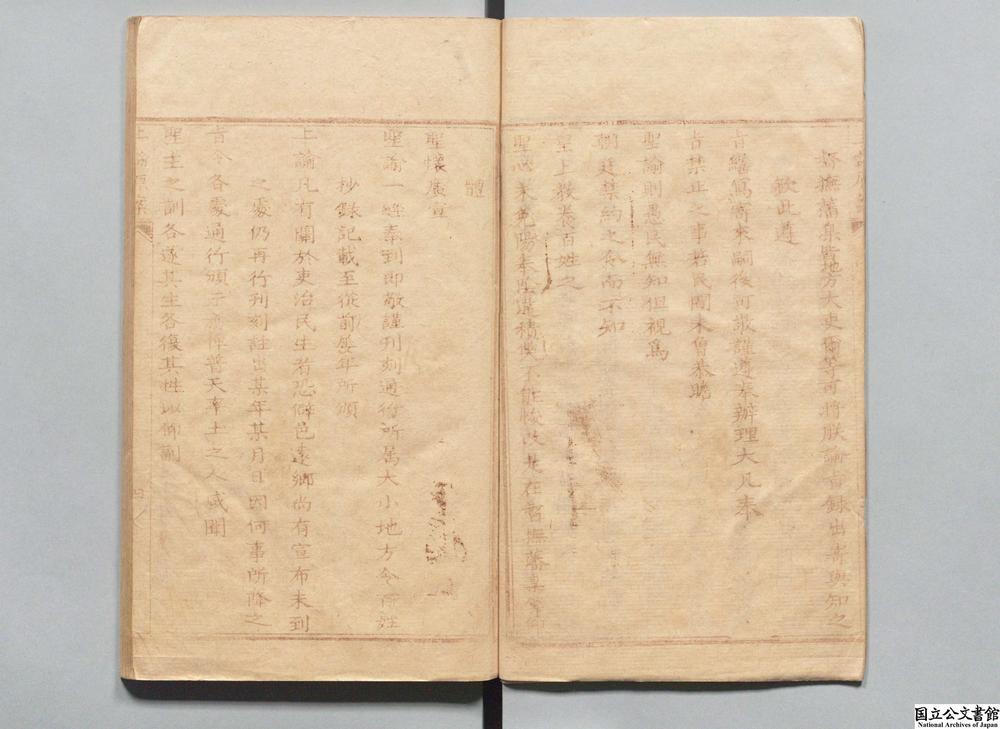 督撫藩臬皆地方大吏爾等可將朕諭旨錄出寄與知之
欽此遵
旨繕寫寄來嗣後可敬謹遵奉辦理大凡奉
旨禁止之事若民間未曾恭瞻
聖諭則愚民無知但視為
朝廷禁約之
而不知
皇上教養百姓之
聖心
陽奉陰違積
悛改是在督撫藩臬
體
聖懷廣宣
聖諭一經奉到即敬謹刊刻通行所屬大小地方令百姓
抄錄記載至從前歷年所頒
上諭凡有關於吏治民生者恐僻邑遠鄉尚有宣布未到
之處仍再行刊刻註出某年某月日因何事所降之
旨令各處通行頒示
俾普天率土之人咸聞
聖主之訓各遂其生各復其性以仰副
上諭原案
國立公文書館
National Archives of Japan